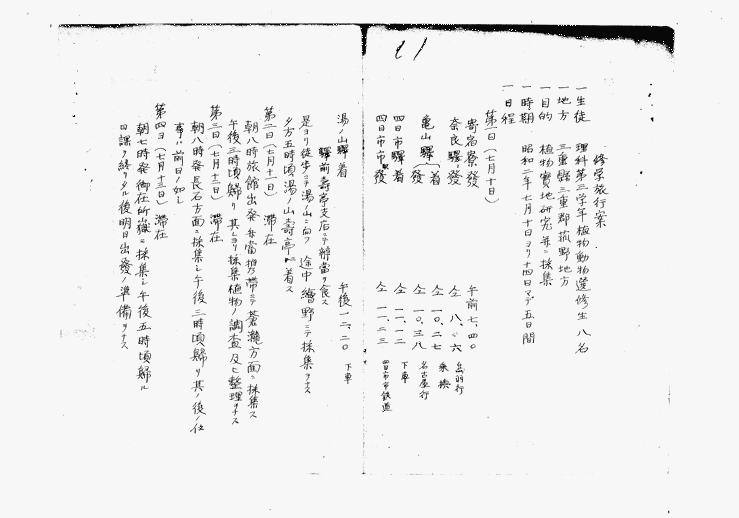 修学旅行案
一生徒 理科第三学年植物動物選修生 八名
一地方 三重縣三重郡菰野地方
一目的 植物實地研究並ニ採集
一時期 昭和二年七月十日ヨリ十四日マデ五日間
一日程
第一日(七月十日)
寄宿寮發 午前七、四〇
奈良驛發 仝 八、〇六 名古屋行
亀山驛 着 仝 一〇、二七 乗換
發 仝 一〇、三八 名古屋行
四日市驛着 仝 一一、一二 下車
四日市市駅發 仝 一一、二三 四日市市鉄道
湯ノ山驛着 午後一二、二〇 下車
驛前壽亭支店ニテ辨當ヲ食ス
是ヨリ徒歩ニテ湯ノ山ニ向フ 途中 繪野ニテ採集ヲナス
夕方五時頃湯ノ山壽亭ニ着ス
第二日(七月十一日) 滞在
朝八時旅館出発 弁當携帯ニテ蒼瀧方面ニ採集ス
午後三時頃歸リ 其レヨリ採集植物ノ調査及ビ整理ヲナス
第三日(七月十二日) 滞在
朝八時発長石方面ニ採集シ午後三時頃歸リ其ノ後ノ仕
事ハ前日ノ如シ
第四日(七月十三日) 滞在
朝七時発御在所嶽ニ採集シ午後五時頃歸ル
日課ヲ終リタル後明日出發ノ準備ヲナス